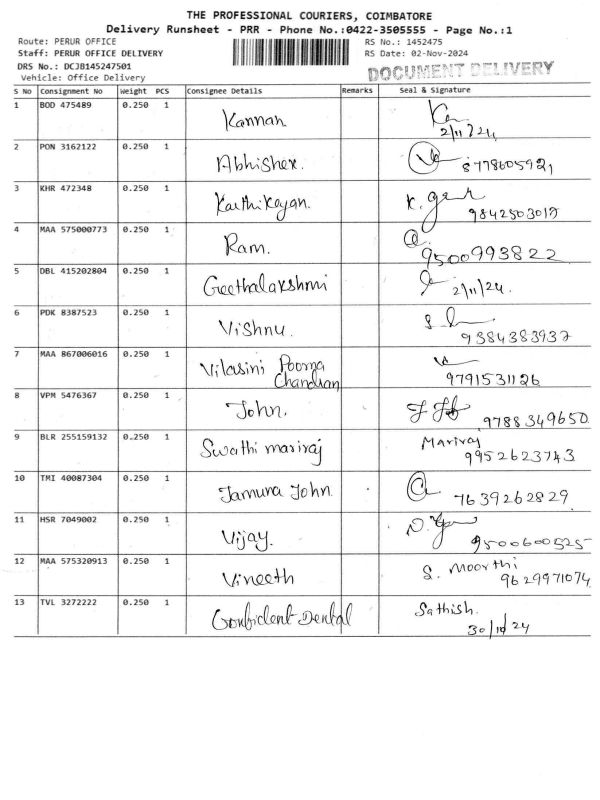 THE PROFESSIONAL COURIERS, COIMBATORE
Delivery Runsheet - PRR - Phone No.:0422-3505555 - Page No.:1
Route: PERUR OFFICE RS No.: 1452475
Staff: PERUR OFFICE DELIVERY RS Date: 02-Nov-2024
DRS No.: DCJB145247501 DOCUMENT DELIVERY
Vehicle: Office Delivery
S No Consignment No Weight PCS Consignee Details Remarks Seal & Signature
1 BOD 475489 0.250 1 Kannan
2/11/24
2 PON 3162122 0.250 1 Abhishex. 8778605921
3 KHR 472348 0.250 1 Karthikeyan. 9842503017
4 MAA 575000773 0.250 1 Ram. 9500993822
5 DBL 415202804 0.250 1 Geethalakshmi 2/11/24.
6 PDK 8387523 0.250 1 Vishnu. 9384383937
7 MAA 867006016 0.250 1 Vilasini Poorna
Chandran 9791531126
8 VPM 5476367 0.250 1 John. 9788349650
9 BLR 255159132 0.250 1 Swathi mariraj Mariraj
9952623743
10 TMI 40087304 0.250 1 Jamuna John. 7639262829
11 HSR 7049002 0.250 1 Vijay. 9500600525
12 MAA 575320913 0.250 1 Vineeth S. Moorthi
9629971074
13 TVL 3272222 0.250 1 Confident Dental Sathish.
30/10/24